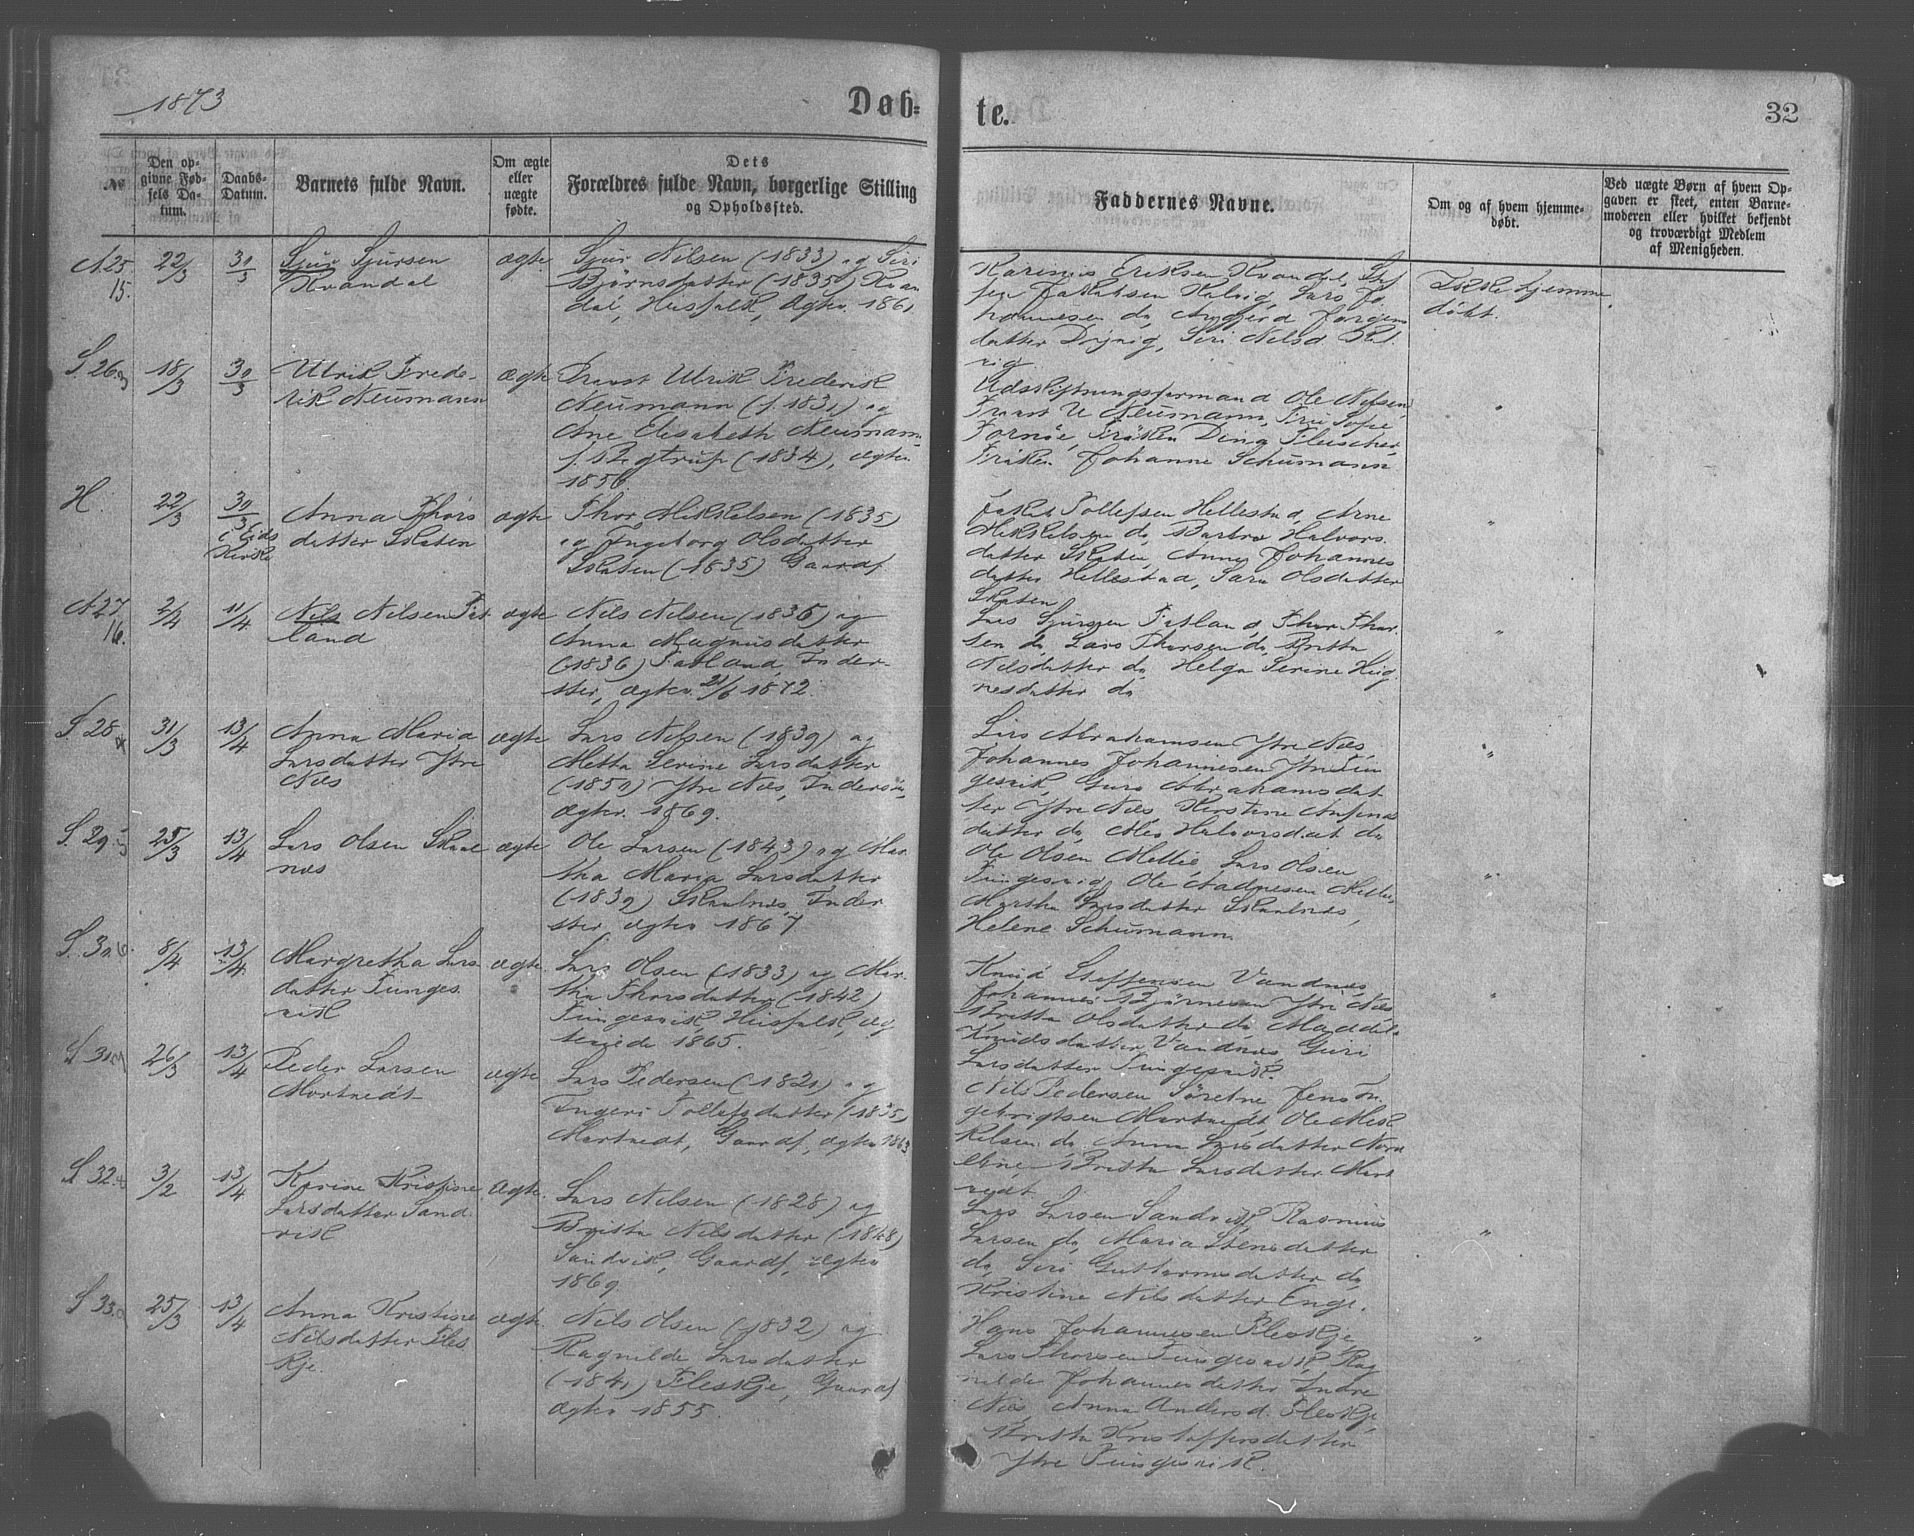 1873
Døb-
te.
32
No
Den op-
givne Fød-
sels Da-
tum.
Daabs-
Datum.
Barnets fulde Navn.
Om ægte
eller
uægte
fødte.
Dets
Forældres fulde Navn, borgerlige Stilling
og Opholdssted.
Faddernes Navne.
Om og af hvem hjemme-
døbt.
Ved uægte Børn af hvem Op-
gaven er skeet, enten Barne-
moderen eller hvilket bekjendt
og troværdigt Medlem
af Menigheden.
A. 25.
15.
22/3
30/3
Sjur Sjursen
Kvandal
ægte
Sjur Nilsen (1833) og Siri
Bjørnsdatter (1835) Kvan
dal, Husfolk, Ægtev. 1861
Eriksen Kvandal,
Jakobsen
hannesen do,
datter Siri Nilsd.
vig
Ikke hjemme
døbt.
S. 26.
18/3
30/3
Ulrik Frede-
rik Neumann
ægte
Provst Ulrik Frederik
Neumann (f. 1831) og
Ane Elisabeth Neumann
f. (1834), ægtev.
1856.
Udskiftningsformand Ole Nilsen
Provst U Neumann, Fru Sofie
Frøken Fleischer,
Frøken Johanne Schumann
"
H.
22/3
30/3
i Eids
Kirke
Anna Thors
datter Skaten
ægte
Thor Mikkelsen (1835)
og Ingeborg Olsdatter
Skaten (1835) Gaardf.
Jakob Tollefsen Hellestad, Arne
Mikkelsen do, Barbro Halvors
datter Skaten, Anna Johannes
datter Hellestad, Sara Olsdatter
Skaten
"
A. 27.
16.
2/4
11/4
Nils Nilsen Fat
land
ægte
Nils Nilsen (1836) og
Anna Magnusdatter
(1836) Fatland, Inder-
ster, ægtev. 21/6 1872.
Lars Sjursen Fatland, Thor Thor
sen do, Lars Thorsen do, Britta
Nilsdatter do, Helga Serine
nesdatter do
"
S. 28
31/3
13/4
Anna Maria
Larsdatter Ytre
Næs
ægte
Lars Nilsen (1839) og
Metta Serine Larsdatter
(1850) Ytre Næs,
ægtev. 1869.
Lars Abrahamsen Ytre Næs,
Johannes Johannesen Ytre Tun
gesvik, Guro Abrahamsdat
ter Ytre Næs, Kirstine
datter do, Halvorsdat do
"
S. 29
25/3
13/4
Lars Olsen Skaal
næs
ægte
Ole Larsen (1843) og Mar
tha Maria Larsdatter
(1839) Skaalnæs, Inder
ster, ægtev. 1867
Ole Olsen Lars Olsen
Tungesvig, Ole
Martha Larsdatter Skaalnæs,
Helene Schumann
"
S. 30.
8/4
13/4
Margretha Lars
datter Tunges
vik
ægte
Lars Olsen (1833) og Mar
tha Thorsdatter (1842)
Tungesvik, Husfolk, æg
teviede 1865.
Knud Steffensen Vandnæs,
Johannes Bjørnesen Ytre Næs
Britta Olsdatter do,
Knudsdatter Vandnæs, Guri
Larsdatter Tungesvik.
"
S. 31
26/3
13/4
Peder Larsen
Mortvedt
ægte
Lars Pedersen (1821) og
Ingeri Tollefsdatter (1835)
Mortvedt, Gaardf, ægtev. 1863
Nils Pedersen
gebrigtsen Mortvedt, Ole Mik
kelsen do, Anna Larsdatter
Britta Larsdatter Mort
vedt
S. 32.
3/2
13/4
Karine Kristine
Larsdatter Sand
vik
Ægte
Lars Nilsen (1828) og
Britta Nilsdatter (1848)
Sandvik, Gaardf, ægtev.
1869.
Lars Larsen Sandvik, Rasmus
Larsen do, Maria Stensdatter
do, Siri Guttormsdatter do,
Kristine Nilsdatter Enge.
"
S. 33.
25/3
13/4
Anna Kristine
Nilsdatter Fles
kje
ægte
Nils Olsen (1832) og
Ragnilde Larsdatter
(1841) Fleskje, Gaardf
ægtev. 1855.
Hans Johannesen Fleskje,
Lars Thorsen Tungesvik, Rag
nilde Johannesdatter Indre
Næs, Anna Andersd. Fleskje,
Britta Kristoffersdatter
Ytre Tungesvik.
"